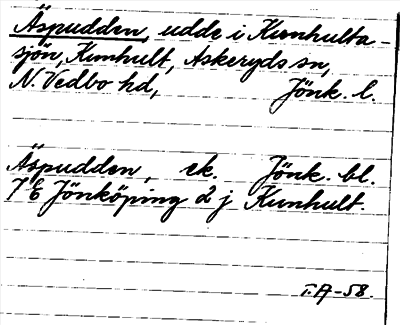 Äspudden, udde i Kumhulta-
sjön, Kumhult, Askeryds sn,
N. Vedbo hd, Jönk. l.
Äspudden, ek. Jönk. bl.
7 E Jönköping 2 j Kumhult.
T.A-58.